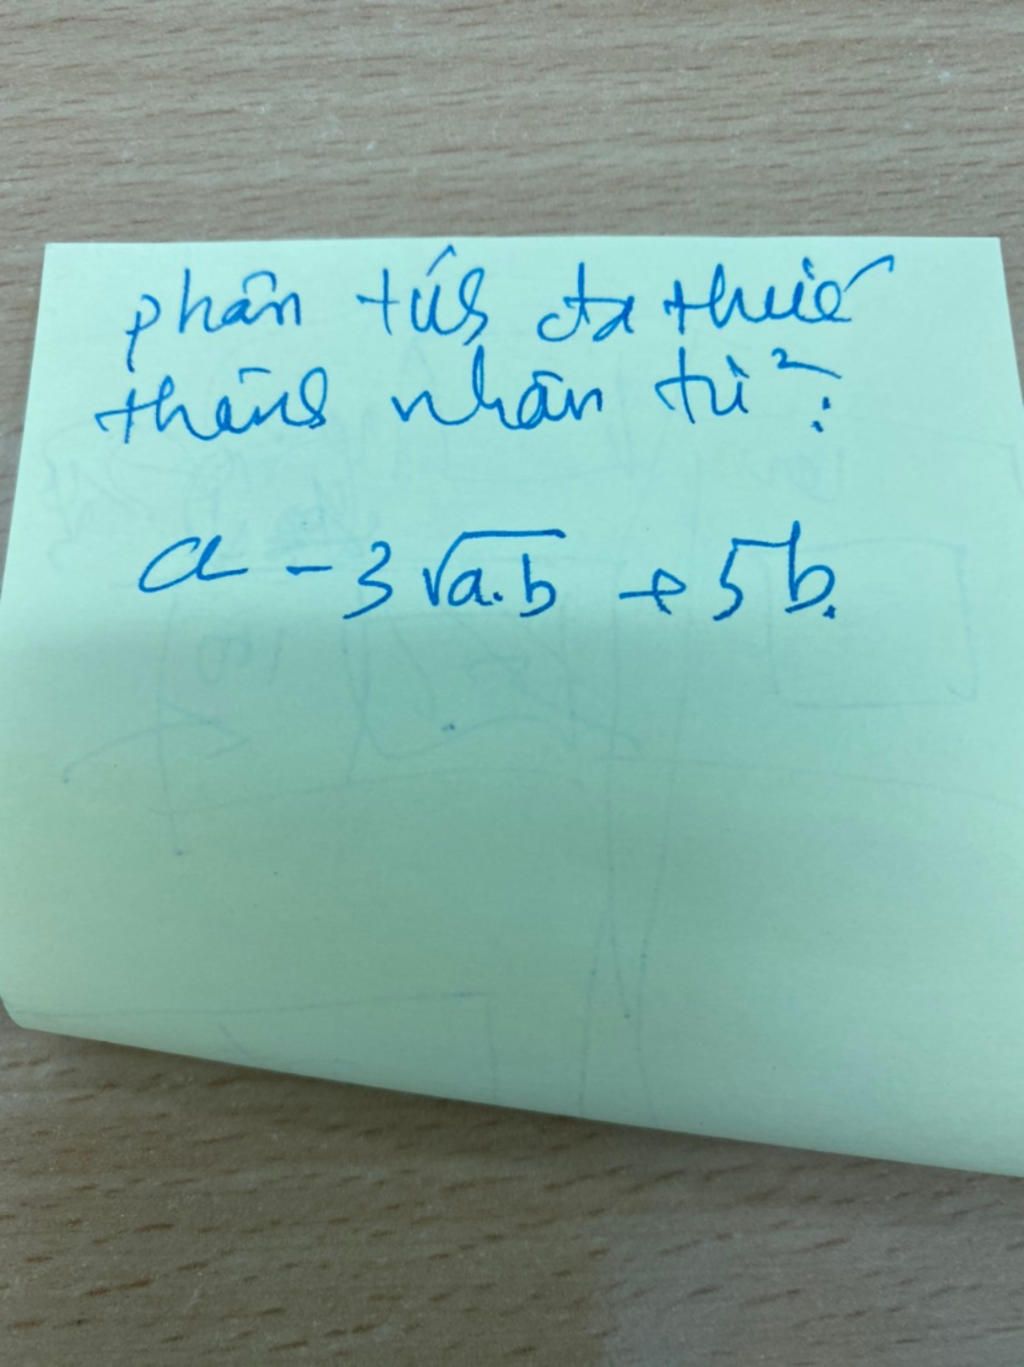 phân tích đa thức
thành nhân tử:
a - 3√a.b + 5b.